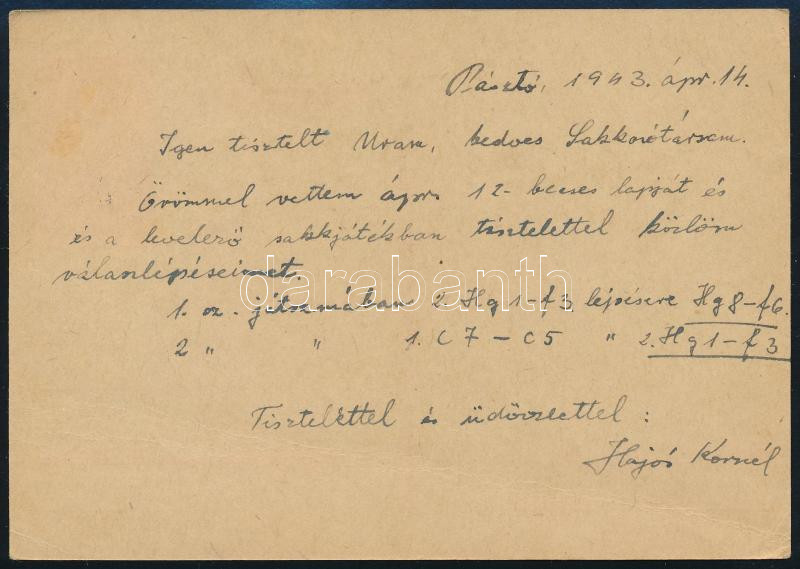 Pásztó, 1943. ápr. 14.
Igen tisztelt Uram, kedves Sakkozótársam.
Örömmel vettem ápr. 12- becses lapját és
és a levelező sakkjátékban tisztelettel közlöm
válaszlépéseimet.
darabanth
1. sz. játszmában 2. Hg1-f3 lépésere Hg8-f6.
2 " " 1. C7-C5 " 2. Hg1-f3
Tisztelettel és üdvözlettel:
Hajós Kornél